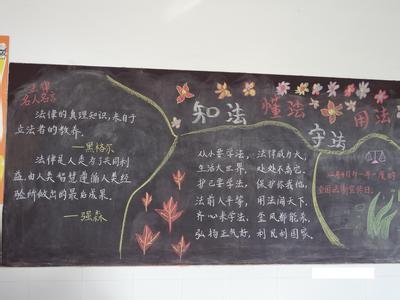 法律
名人名言
法律的真理知识，来自于
立法者的教养。
——黑格尔
法律是人类为了共同利
益，由人类智慧遵循人类经
验所做出的最后成果。
——强森
知法 懂法 用法
守法
从小要学法， 法律威力大，
生活大世界， 处处不离它。
护己要学法， 保护你我他，
法前人平等， 用法闯天下，
齐心来学法， 歪风都能杀，
弘扬正气好， 利民利国家。
12月4日为一年一度的
全国法制宣传日。